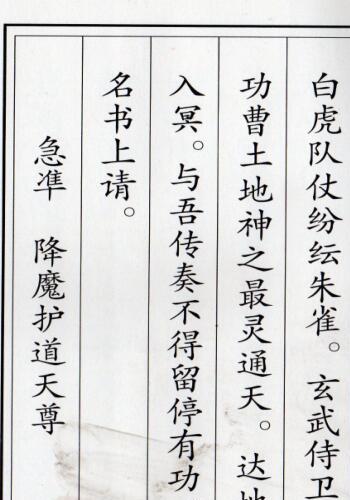 白虎队仗纷纭朱雀。玄武侍卫
功曹土地神之最灵通天。达地
入冥。与吾传奏不得留停有功
名书上请。
急准 降魔护道天尊